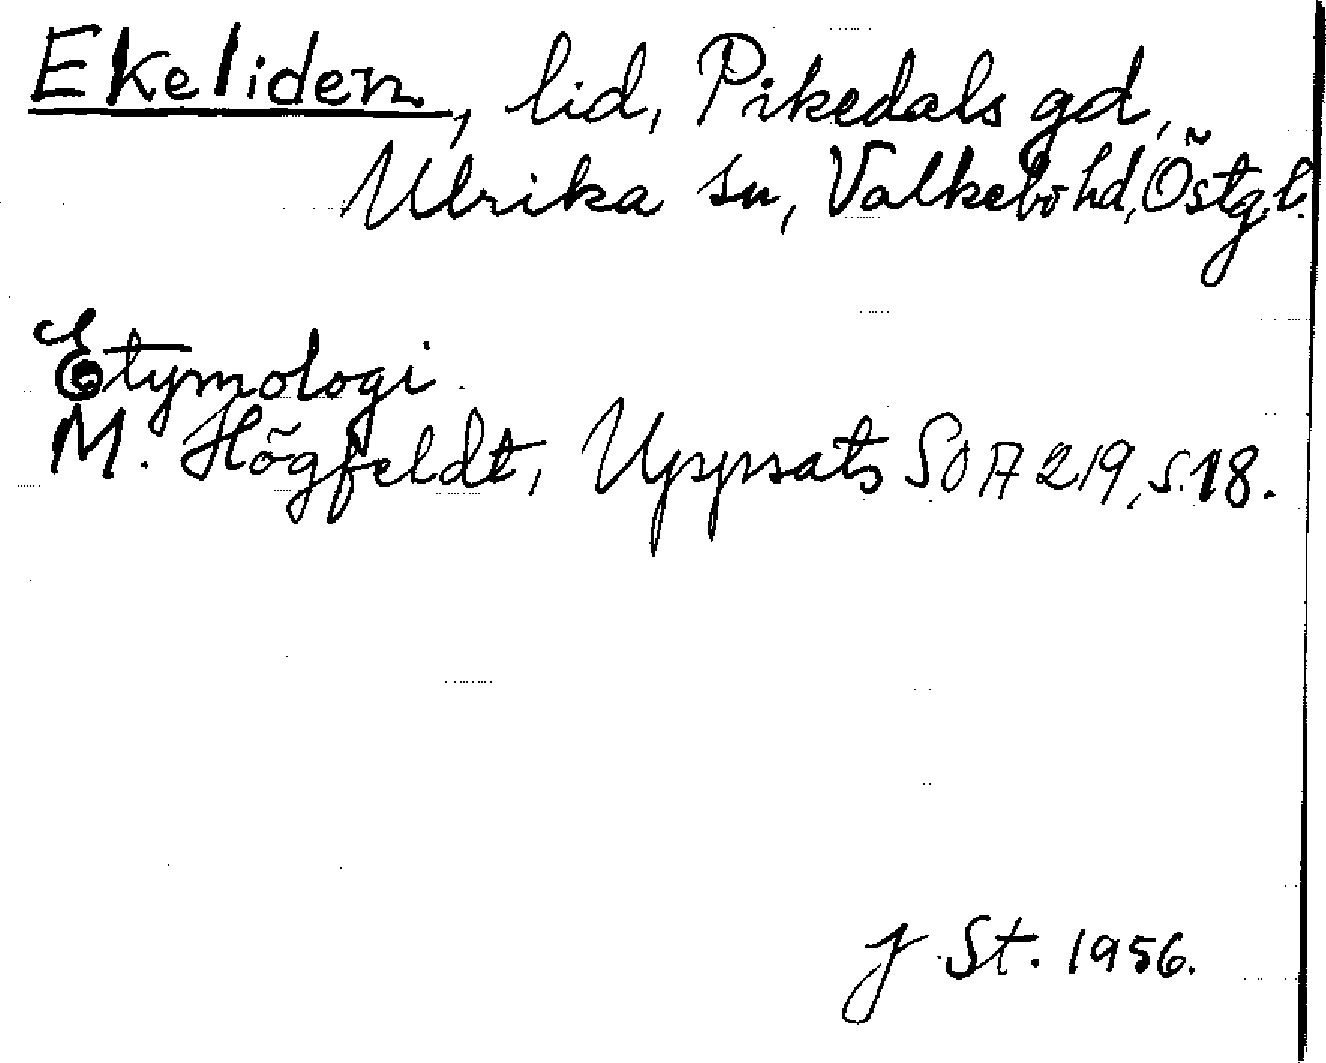 Ekeliden, lid, Pikedals gd,
Ulrika sn, Valkebo hd, Östg.l.
Etymologi
M. Högfeldt, Uppsats SOA 219, s. 18.
J St. 1956.